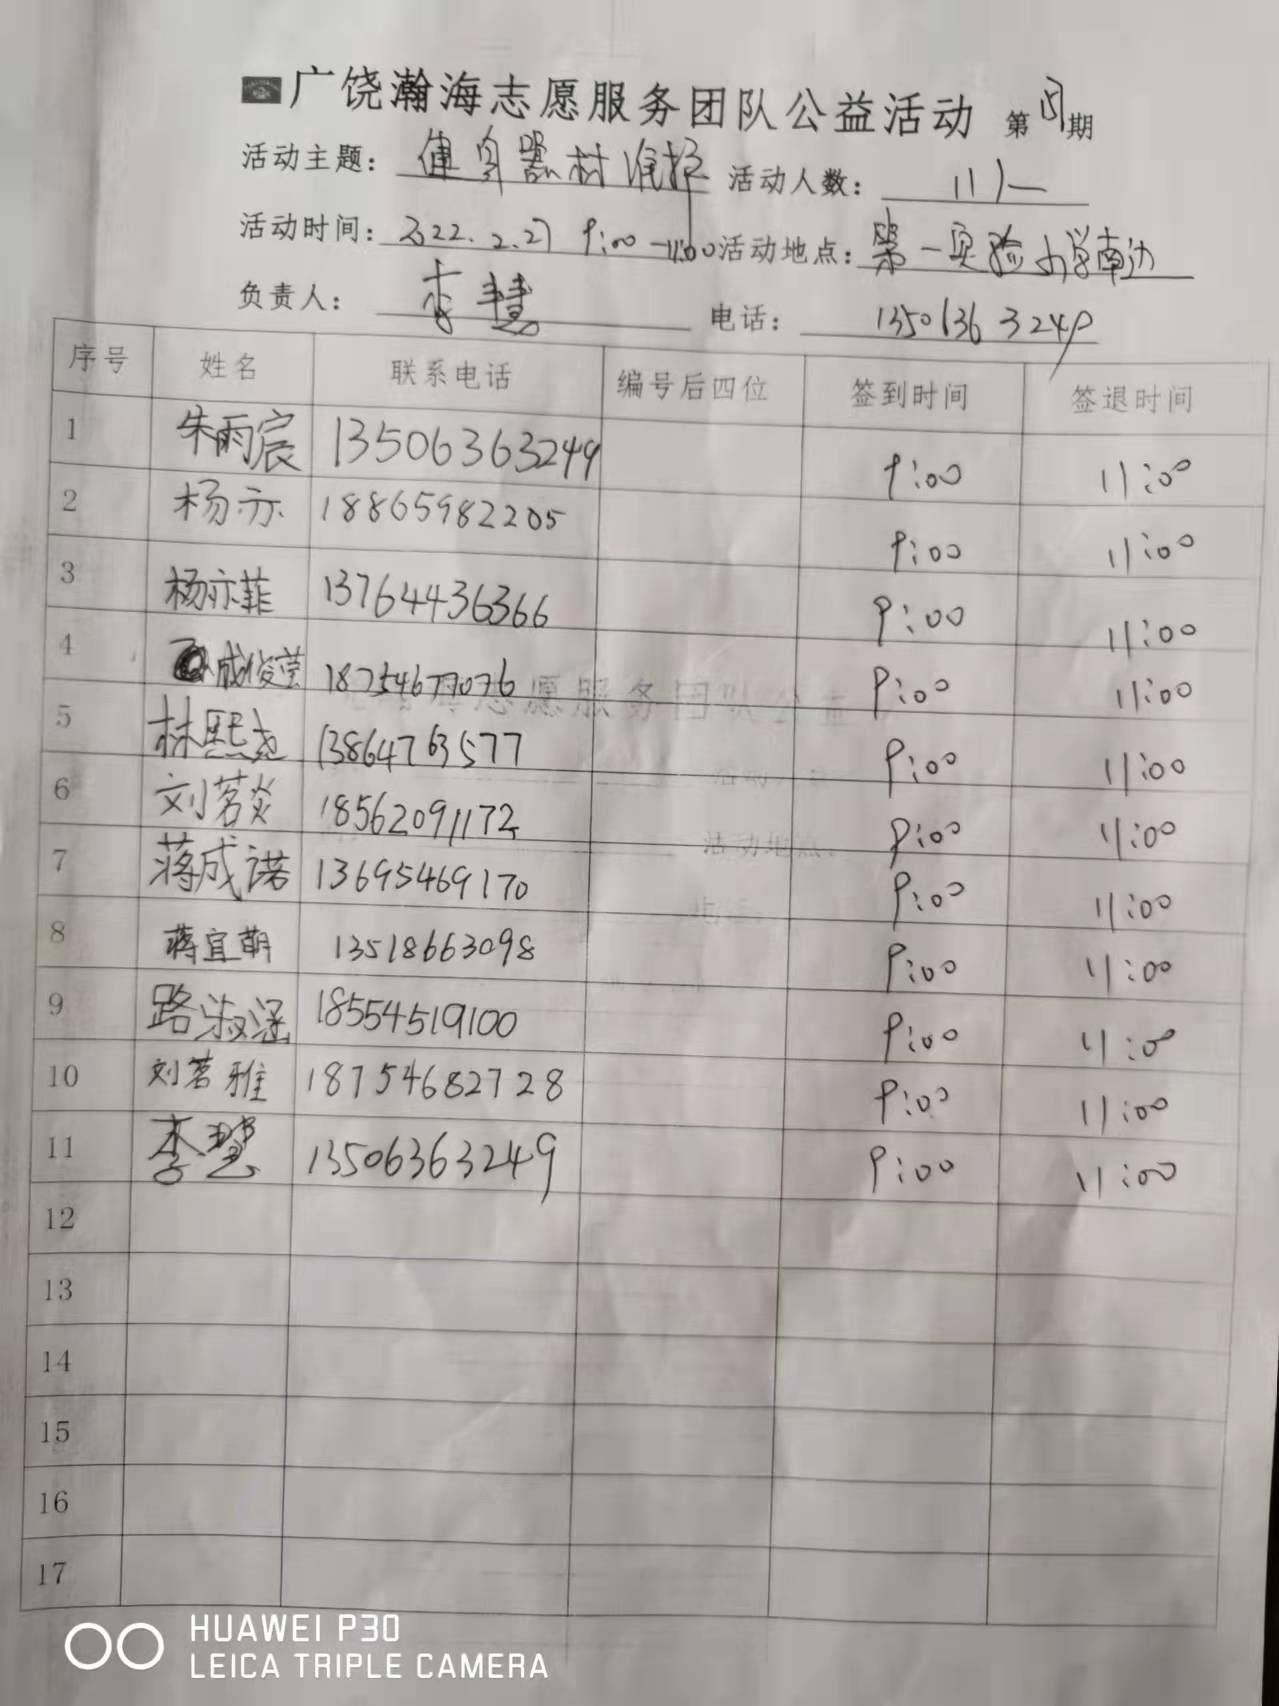 广饶瀚海志愿服务团队公益活动 第 期
活动主题: 健身器材维护 活动人数: 11人
活动时间: 2022.2.27 9:00-11:00 活动地点: 第一实验小学南边
负责人: 李慧 电话: 13506363249
序号 姓名 联系电话 编号后四位 签到时间 签退时间
1 朱雨宸 13506363249 9:00 11:00
2 杨亦 18865982205 9:00 11:00
3 杨亦菲 13764436366 9:00 11:00
4 成俊莹 18754677076 9:00 11:00
5 林熙尧 13864763577 9:00 11:00
6 刘茗炎 18562091172 9:00 11:00
7 蒋成诺 13695469170 9:00 11:00
8 蒋宜朝 13518663098 9:00 11:00
9 路淑涵 18554519100 9:00 11:00
10 刘茗雅 18754682728 9:00 11:00
11 李慧 13506363249 9:00 11:00
12
13
14
15
16
17
HUAWEI P30
LEICA TRIPLE CAMERA